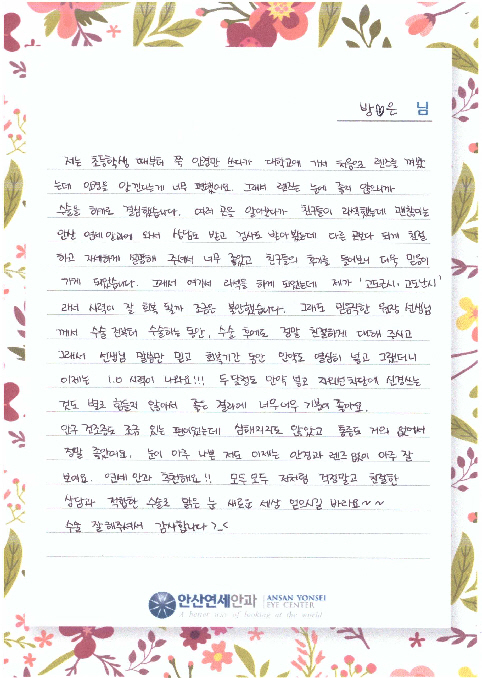 방 은 님
저는 초등학생 때부터 쭉 안경만 쓰다가 대학교에 가서 처음으로 렌즈를 껴봤
는데 안경을 안 낀다는게 너무 편했어요. 그래서 렌즈는 눈에 좋지 않으니까
수술을 하기로 결심했습니다. 여러 곳을 알아보다가 친구들이 라섹했는데 괜찮다는
안산 연세안과에 와서 상담도 받고 검사도 받아봤는데 다른 곳보다 되게 친절
하고 자세하게 설명해 주셔서 너무 좋았고 친구들의 후기를 들어보니 더욱 믿음이
가게 되었습니다. 그래서 여기서 라섹을 하게 되었는데 제가 '고도근시, 고도난시'
라서 시력이 잘 회복 될까 조금은 불안했습니다. 그래도 믿음직한 원장 선생님
께서 수술 전부터 수술하는 동안, 수술 후에도 정말 친절하게 대해 주시고
그래서 선생님 말씀만 믿고 회복기간 동안 안약도 열심히 넣고 그랬더니
이제는 1.0 시력이 나와요!!! 두 달정도 안약 넣고 자외선차단에 신경쓰는
것도 별로 힘들지 않아서 좋은 결과에 너무너무 기분이 좋아요.
안구 건조증도 조금 있는 편이었는데 심해지지도 않았고 통증도 거의 없어서
정말 좋았어요. 눈이 아주 나쁜 저도 이제는 안경과 렌즈 없이 아주 잘
보여요. 연세안과 추천해요!! 모두모두 저처럼 걱정말고 친절한
상담과 적합한 수술로 맑은 눈 새로운 세상 얻으시길 바라요~~
수술 잘해주셔서 감사합니다 >_<
안산연세안과 ANSAN YONSEI
EYE CENTER
A better way of looking at the world